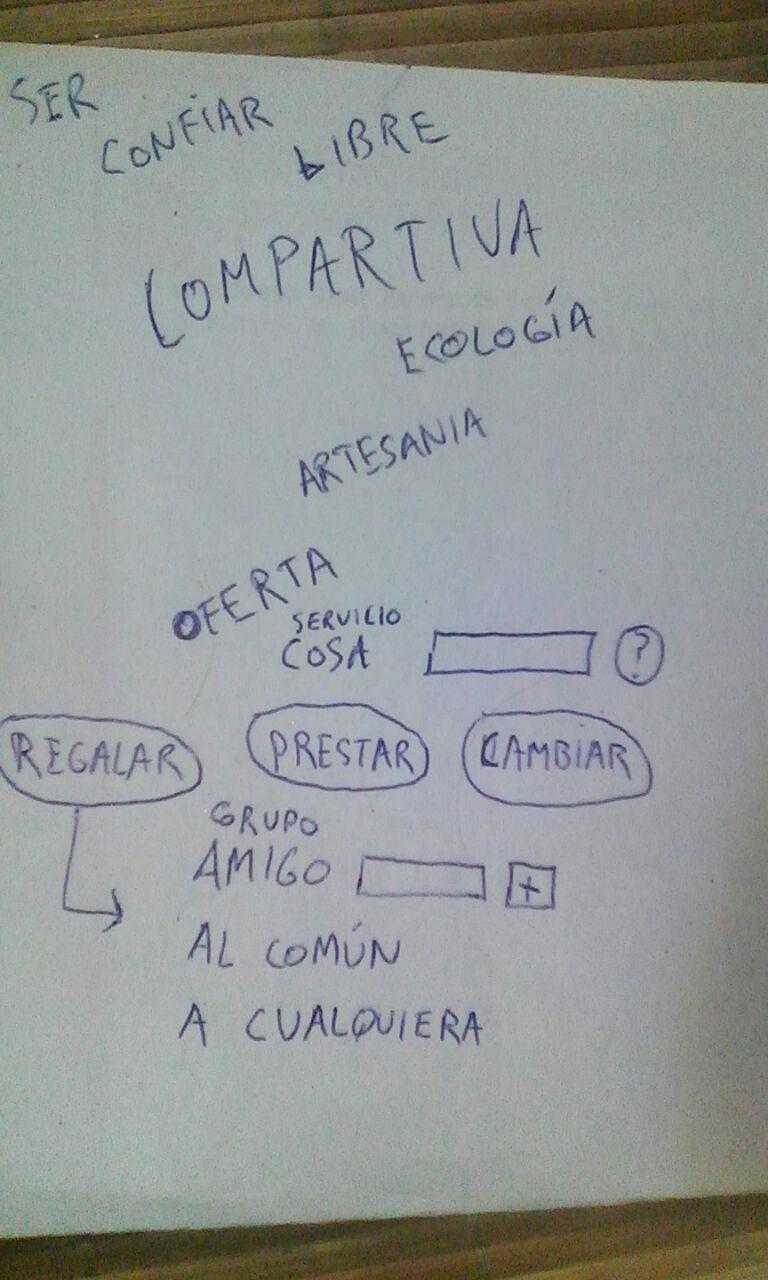 SER
CONFIAR
LIBRE
COMPARTIVA
ECOLOGÍA
ARTESANIA
OFERTA
SERVICIO
COSA ?
REGALAR PRESTAR CAMBIAR
GRUPO
AMIGO +
AL COMÚN
A CUALQUIERA